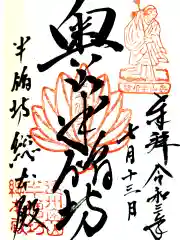 奉拝 令和三年
七月十三日
奥山半僧坊
半僧坊総本殿